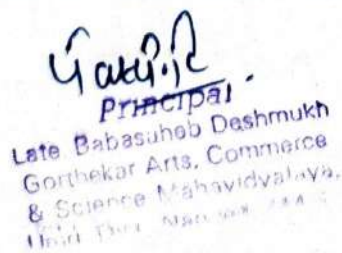 Principal
Late Babasaheb Deshmukh
Gorthekar Arts, Commerce
& Science Mahavidyalaya,